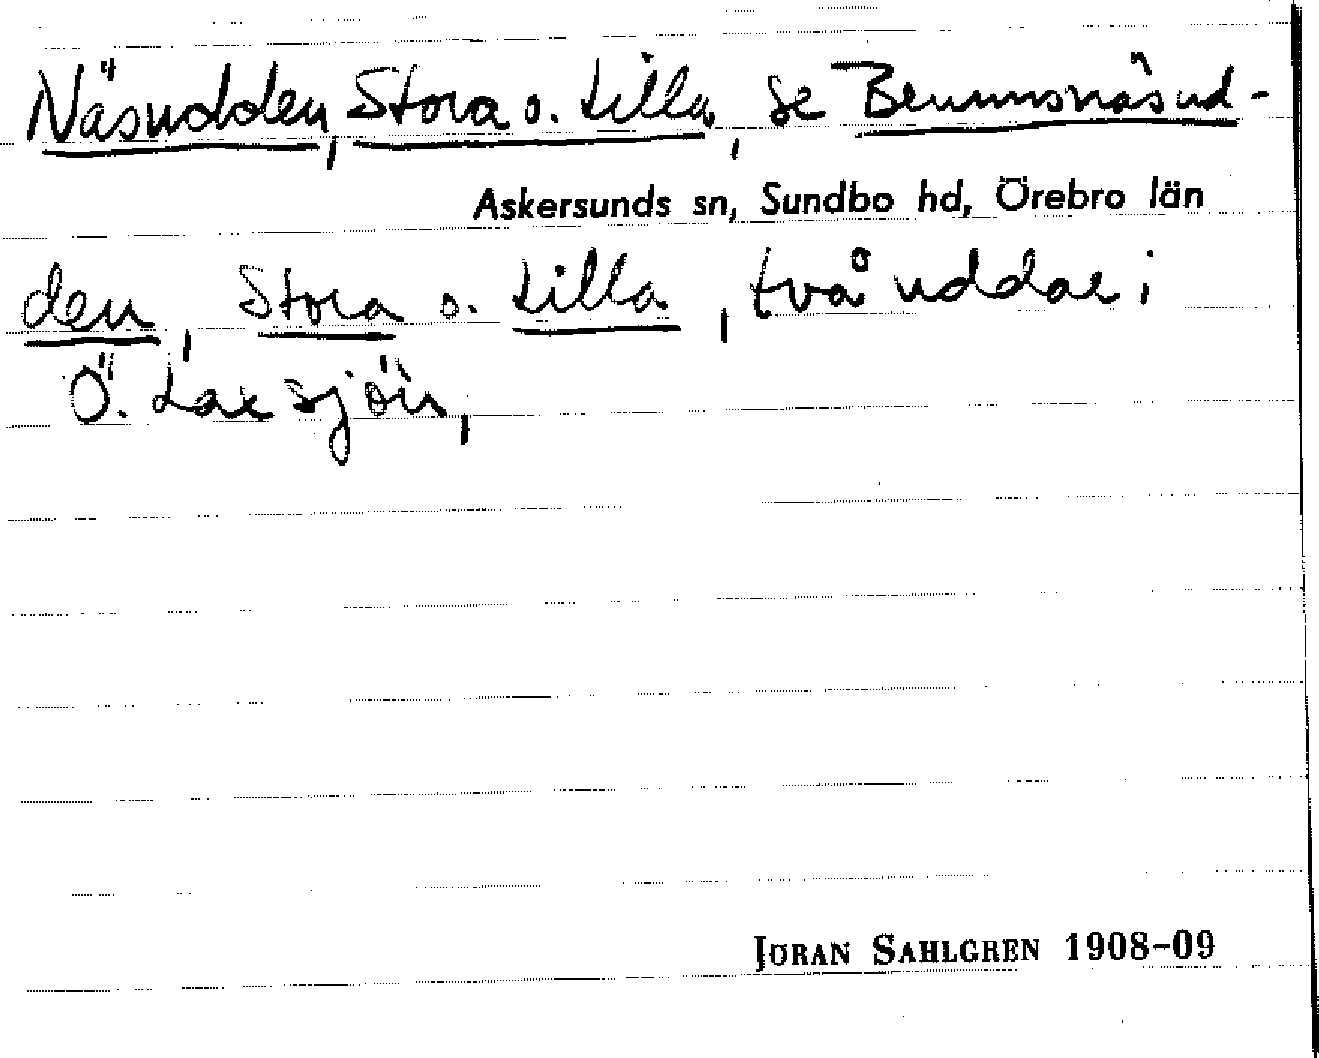 Näsudden, Stora o. Lilla, se Brunnsnäsud-
Askersunds sn, Sundbo hd, Örebro län
den, Stora o. Lilla, två uddar i
Ö. Laxsjön,
JÖRAN SAHLGREN 1908-09